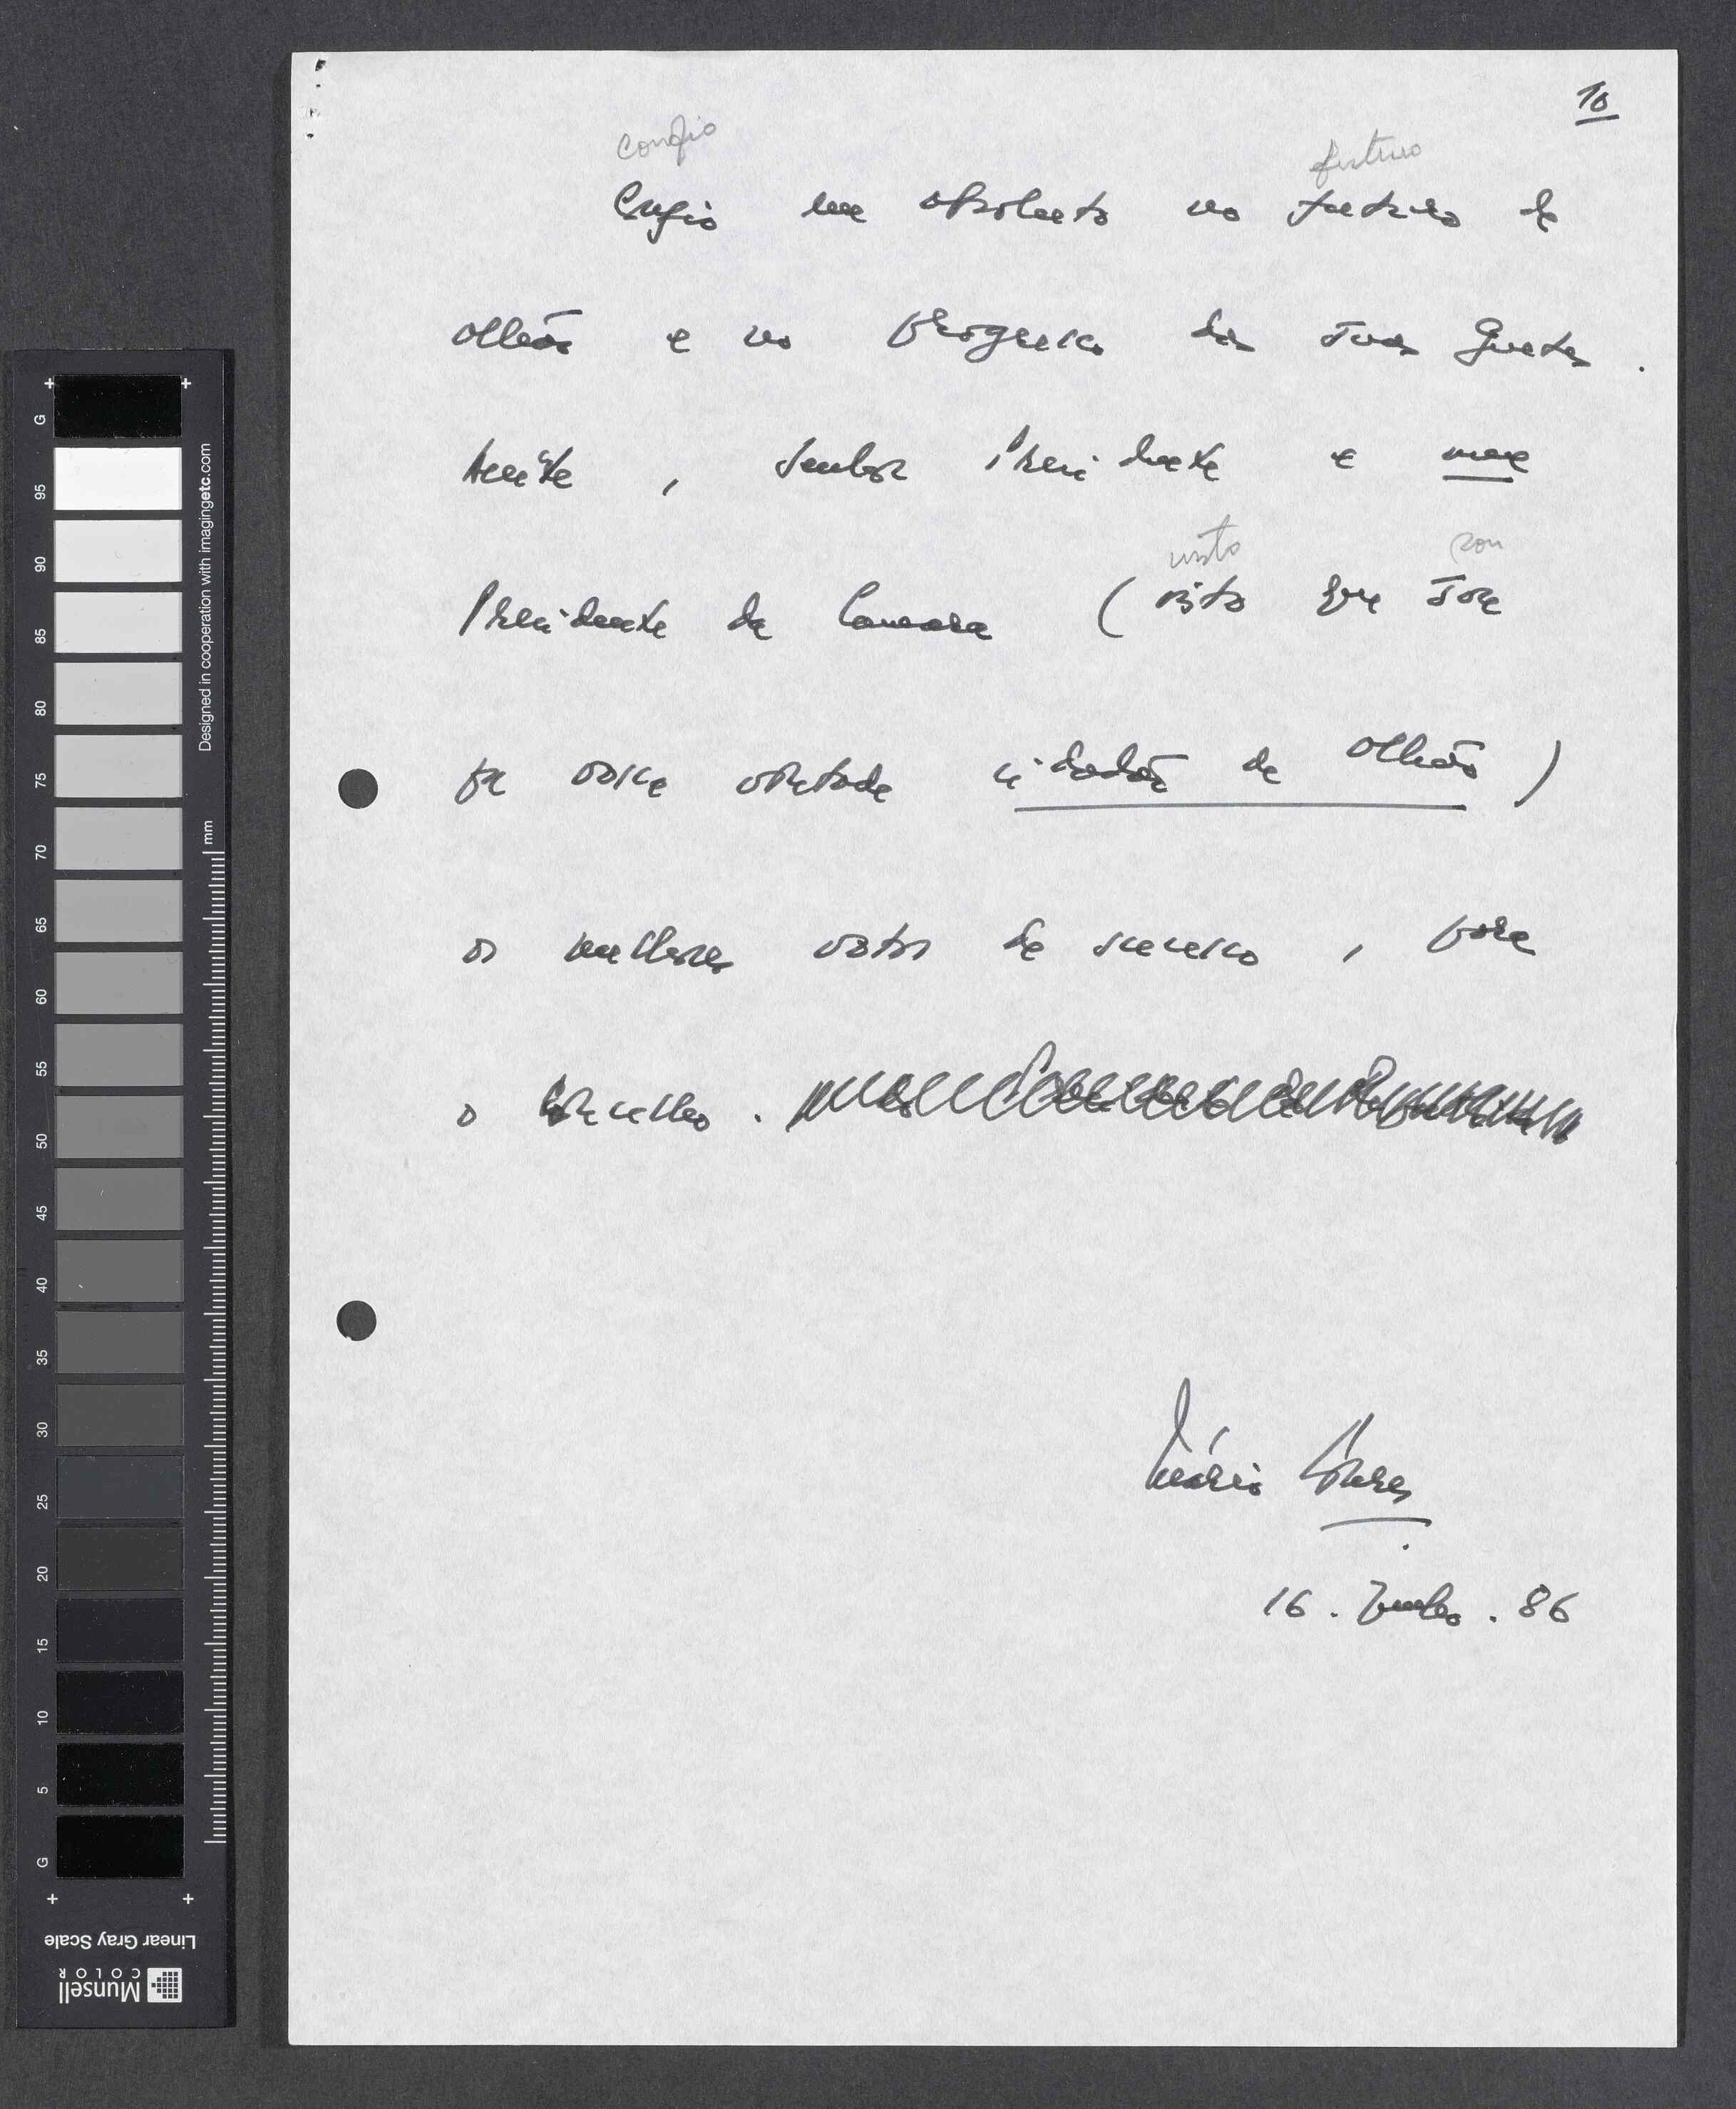 10
confio futuro
Confio em absoluto no futuro de
Olhão e no progresso das suas Gentes.
Aceite, Senhor Presidente e meu
visto sou
Presidente da Camara (visto que sou
por vossa vontade cidadão de Olhão)
os melhores votos de sucesso, para
o Concelho.
Mário Soares
16. Junho. 86
G
95
90
85
80
75
70
65
60
55
50
45
40
35
30
25
20
15
10
5
G
Designed in cooperation with imagingetc.com
mm
Linear Gray Scale
Munsell
COLOR